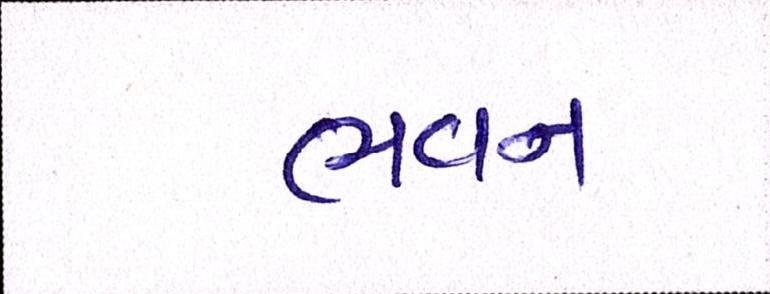 ભવન